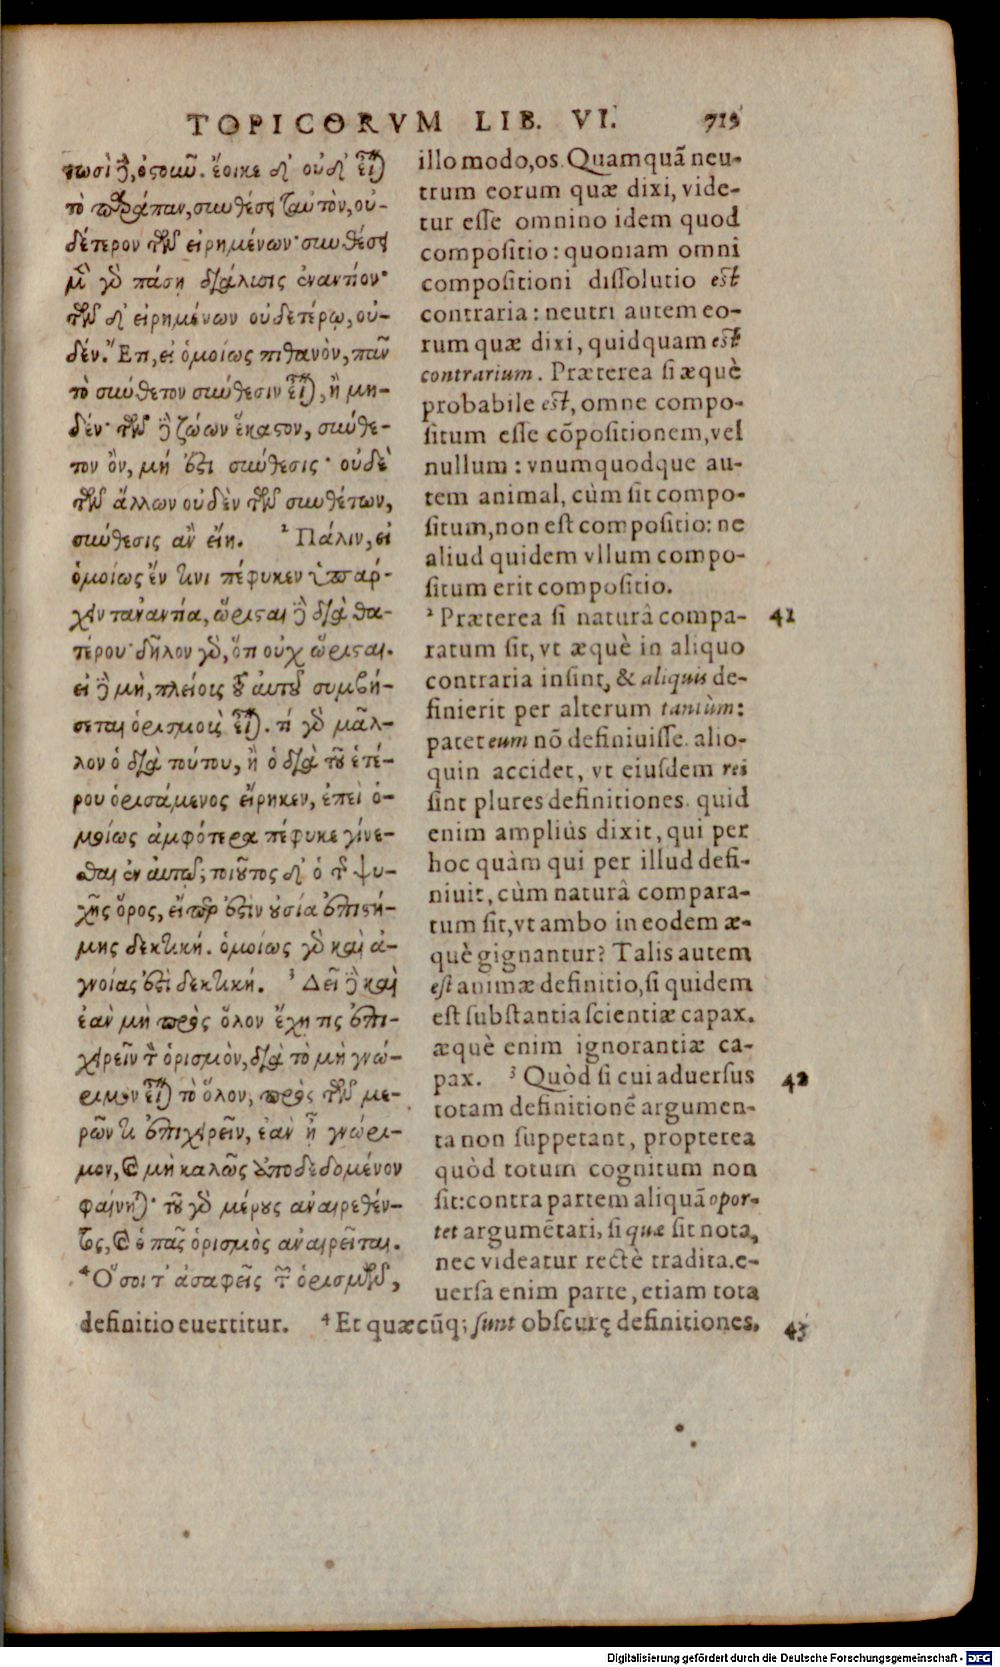 TOPICORVM LIB. VI. 715
τωσὶ δὲ, ὀστοῦν. ἔοικε δ' οὐδ' εἶναι
τὸ παράπαν, συνθέσει ταὐτὸν, οὐ-
δέτερον τῶν εἰρημένων· συνθέσει
μὲν γὰρ πάσῃ διάλυσις ἐναντίον·
τῶν δ' εἰρημένων οὐδετέρῳ, οὐ-
δέν. Ἔτι, εἰ ὁμοίως πιθανὸν, πᾶν
τὸ σύνθετον σύνθεσιν εἶναι, ἢ μη-
δέν· τῶν δὲ ζώων ἕκαστον, σύνθε-
τον ὂν, μή ἐστι σύνθεσις· οὐδὲ
τῶν ἄλλων οὐδὲν τῶν συνθέτων,
σύνθεσις ἂν εἴη. ² Πάλιν, εἰ
ὁμοίως ἔν τινι πέφυκεν ὑπαρ-
χειν τἀναντία, ὥρισται δὲ διὰ θα-
τέρου· δῆλον γὰρ, ὅτι οὐχ ὥρισται.
εἰ δὲ μὴ, πλείους τοῦ αὐτοῦ συμβή-
σεται ὁρισμοὺς εἶναι. τί γὰρ μᾶλ-
λον ὁ διὰ τούτου, ἢ ὁ διὰ τοῦ ἑτέ-
ρου ὁρισάμενος εἴρηκεν, ἐπεὶ ὁ-
μοίως ἀμφότερα πέφυκε γίνε-
σθαι ἐν αὐτῷ; τοιοῦτος δ' ὁ τῆς ψυ-
χῆς ὅρος, εἴπερ ἐστὶν οὐσία ἐπιστή-
μης δεκτική. ὁμοίως γὰρ καὶ ἀ-
γνοίας ἐστὶ δεκτική. ³ Δεῖ δὲ καὶ
ἐὰν μὴ πρὸς ὅλον ἔχῃ τις ἐπι-
χειρεῖν τὸν ὁρισμὸν, διὰ τὸ μὴ γνώ-
ριμον εἶναι τὸ ὅλον, πρὸς τῶν με-
ρῶν τι ἐπιχειρεῖν, ἐὰν ᾖ γνώρι-
μον, καὶ μὴ καλῶς ἀποδεδομένον
φαίνηται· τοῦ γὰρ μέρους ἀναιρεθέν-
τος, καὶ ὁ πᾶς ὁρισμὸς ἀναιρεῖται.
⁴ Ὅσοι τ' ἀσαφεῖς τῶν ὁρισμῶν,
illo modo, os. Quamquã neu-
trum eorum quæ dixi, vide-
tur esse omnino idem quod
compositio: quoniam omni
compositioni dissolutio est
contraria: neutri autem eo-
rum quæ dixi, quidquam est
contrarium. Præterea si æquè
probabile est, omne compo-
situm esse cõpositionem, vel
nullum: vnumquodque au-
tem animal, cùm sit compo-
situm, non est compositio: ne
aliud quidem vllum compo-
situm erit compositio.
² Præterea si naturâ compa- 41
ratum sit, vt æquè in aliquo
contraria insint, & aliquis de-
finierit per alterum tantùm:
patet eum nõ definiuisse. alio-
quin accidet, vt eiusdem rei
sint plures definitiones. quid
enim ampliùs dixit, qui per
hoc quàm qui per illud defi-
niuit, cùm naturâ compara-
tum sit, vt ambo in eodem æ-
què gignantur? Talis autem
est animæ definitio, si quidem
est substantia scientiæ capax.
æquè enim ignorantiæ ca-
pax. ³ Quòd si cui aduersus 42
totam definitionẽ argumen-
ta non suppetant, propterea
quòd totum cognitum non
sit: contra partem aliquã opor-
tet argumẽtari, si quæ sit nota,
nec videatur rectè tradita. e-
uersa enim parte, etiam tota
definitio euertitur. ⁴ Et quæcũq; sunt obscurę definitiones. 43
Digitalisierung gefördert durch die Deutsche Forschungsgemeinschaft - DFG